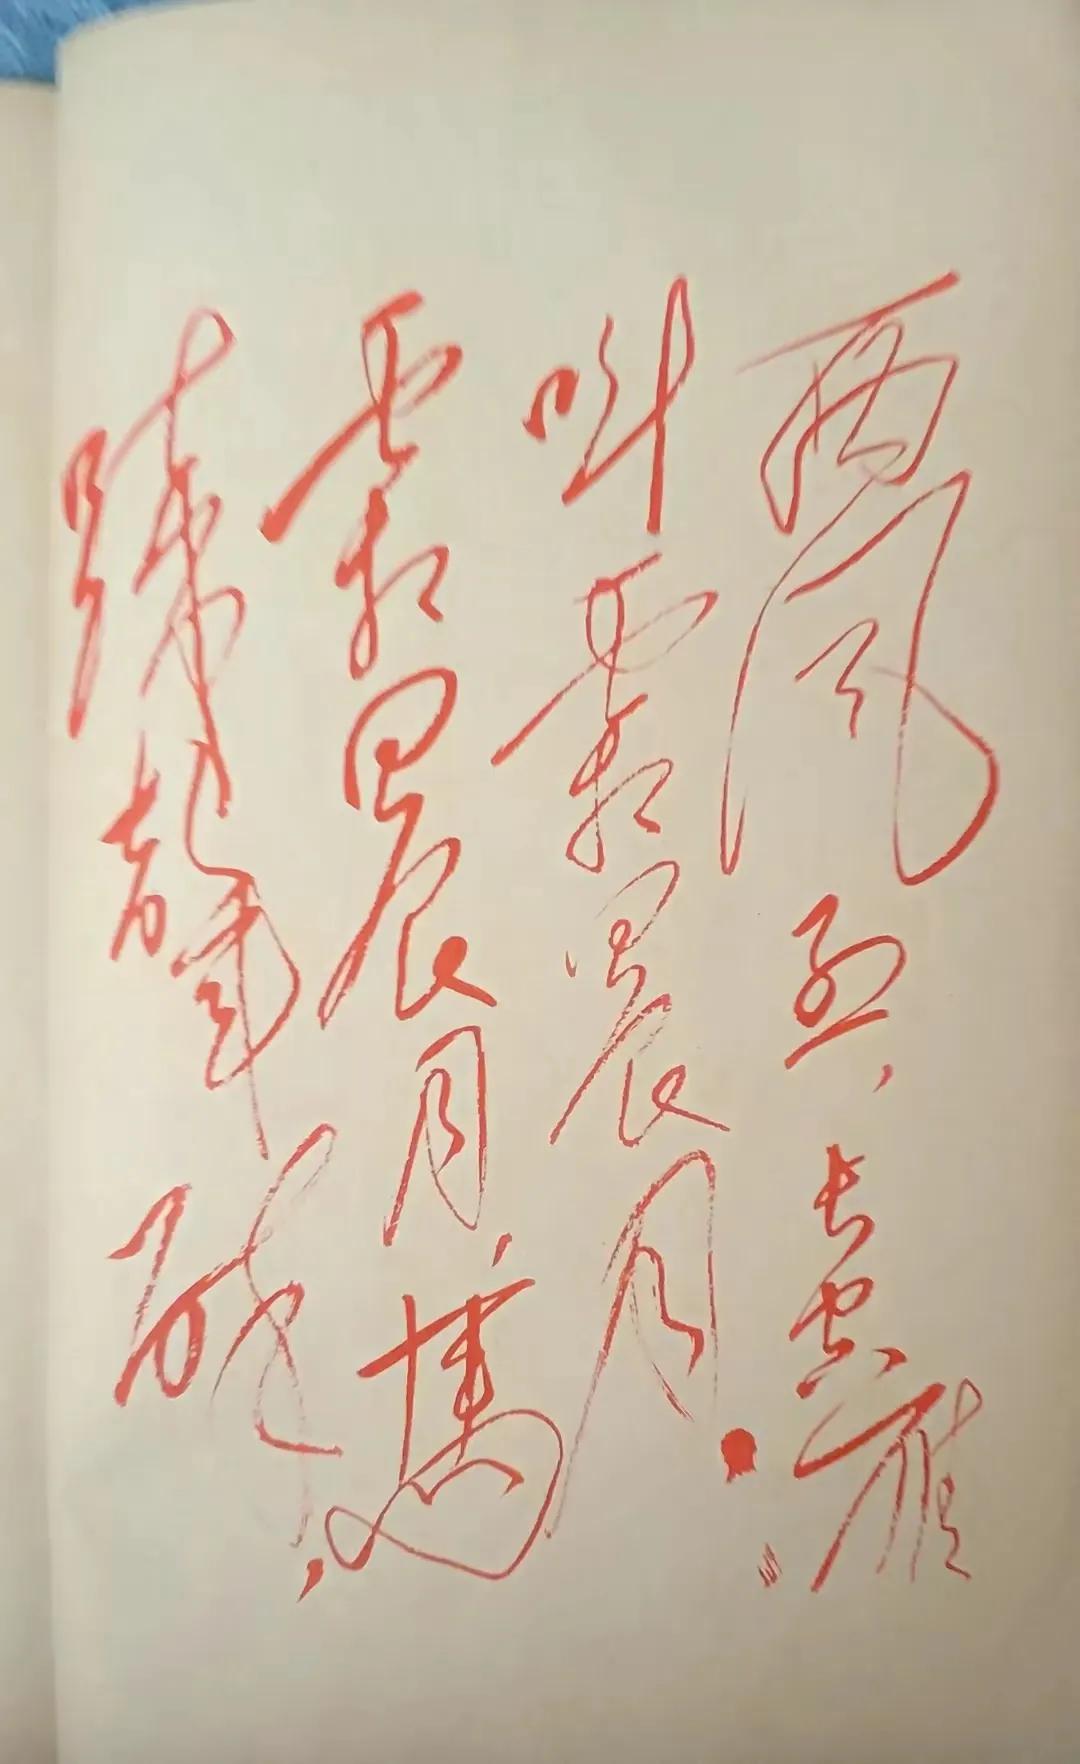 西风烈，长空雁
叫霜晨月。
霜晨月，马
蹄声碎，